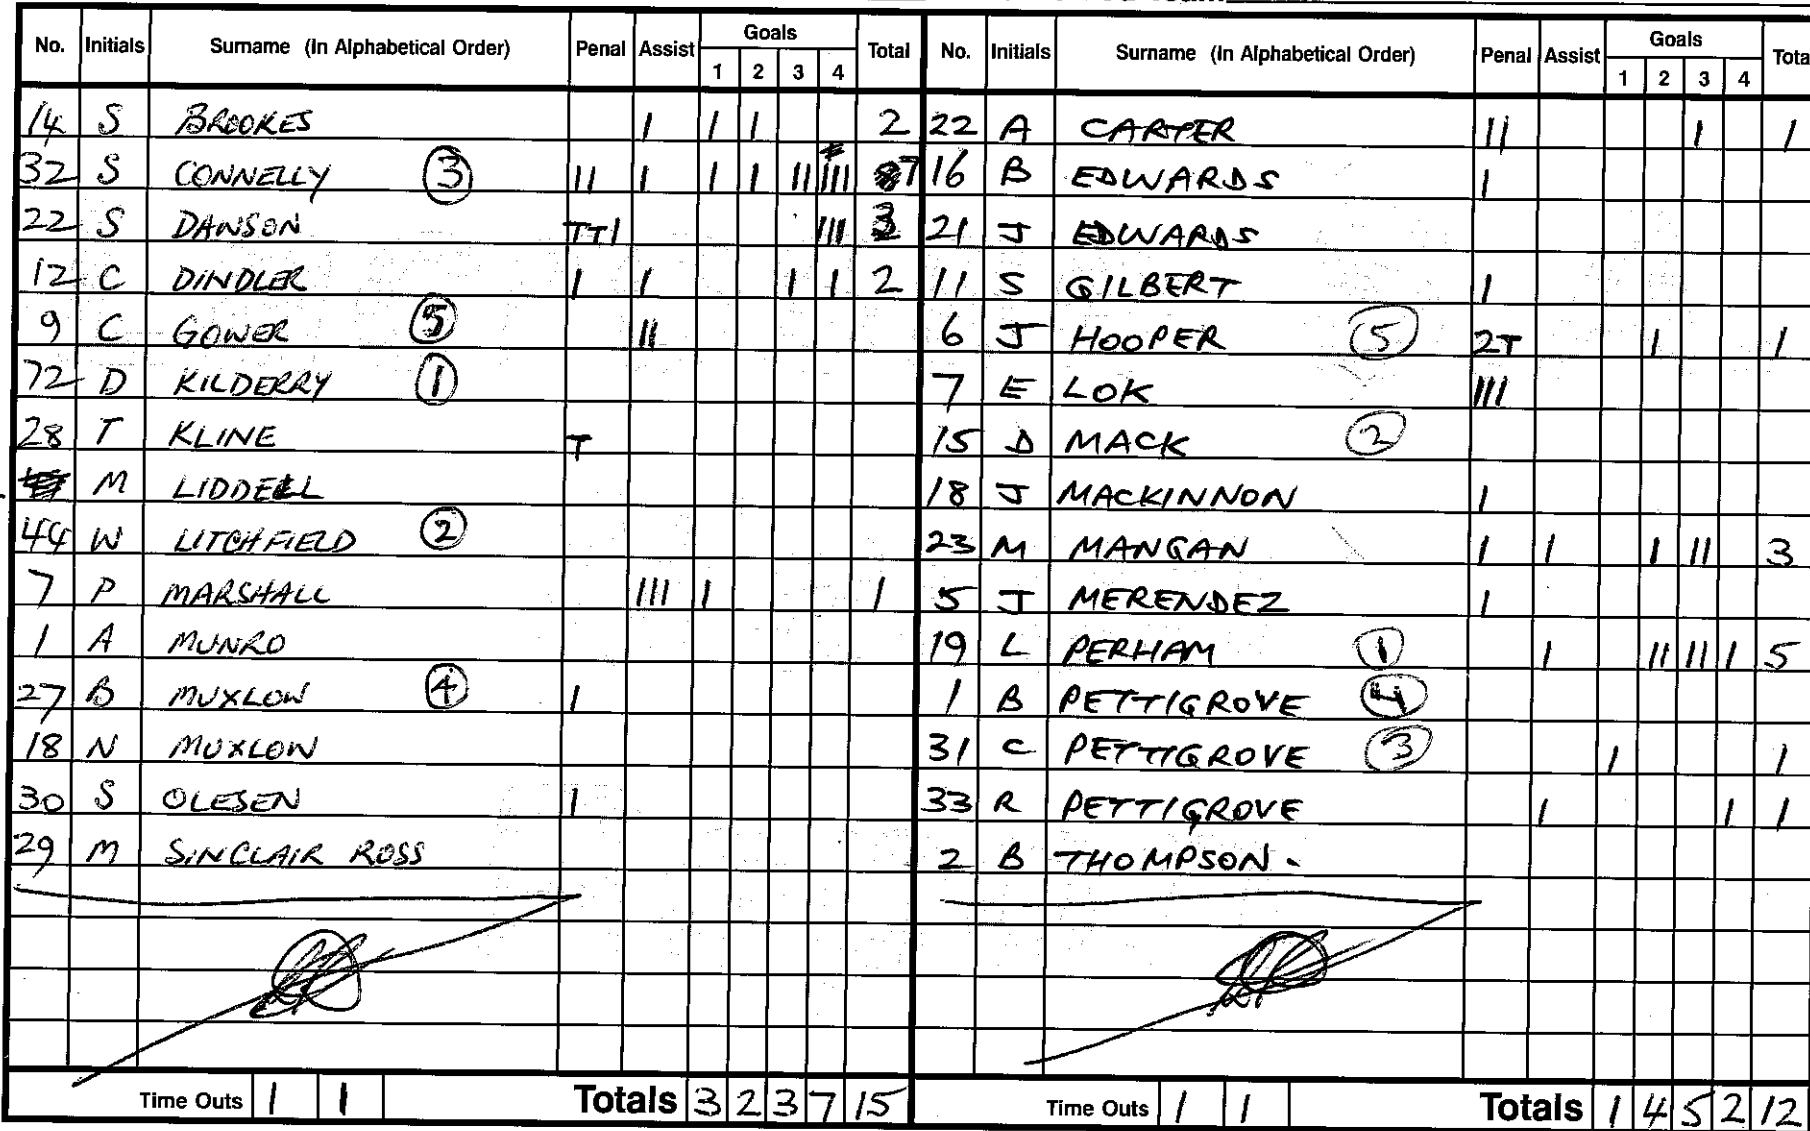 No. Initials Surname (In Alphabetical Order) Penal Assist Goals 1 2 3 4 Total
14 S BROOKES I I I 2
32 S CONNELLY 3 II I I I II III 7
22 S DAWSON TTI III 3
12 C DINDLER I I I I 2
9 C GOWER 5 II
72 D KILDERRY 1
28 T KLINE T
M LIDDELL
44 W LITCHFIELD 2
7 P MARSHALL III I 1
1 A MUNRO
27 B MUXLOW 4 I
18 N MUXLOW
30 S OLESEN I
29 M SINCLAIR ROSS
Time Outs 1 1 Totals 3 2 3 7 15
No. Initials Surname (In Alphabetical Order) Penal Assist Goals 1 2 3 4 Tota
22 A CARTER II I 1
16 B EDWARDS I
21 J EDWARDS
11 S GILBERT I
6 J HOOPER 5 2T I 1
7 E LOK III
15 D MACK 2
18 J MACKINNON I
23 M MANGAN I I I II 3
5 J MERENDEZ I
19 L PERHAM 1 I II II I 5
1 B PETTIGROVE 4
31 C PETTIGROVE 3 I 1
33 R PETTIGROVE I I 1
2 B THOMPSON.
Time Outs 1 1 Totals 1 4 5 2 12